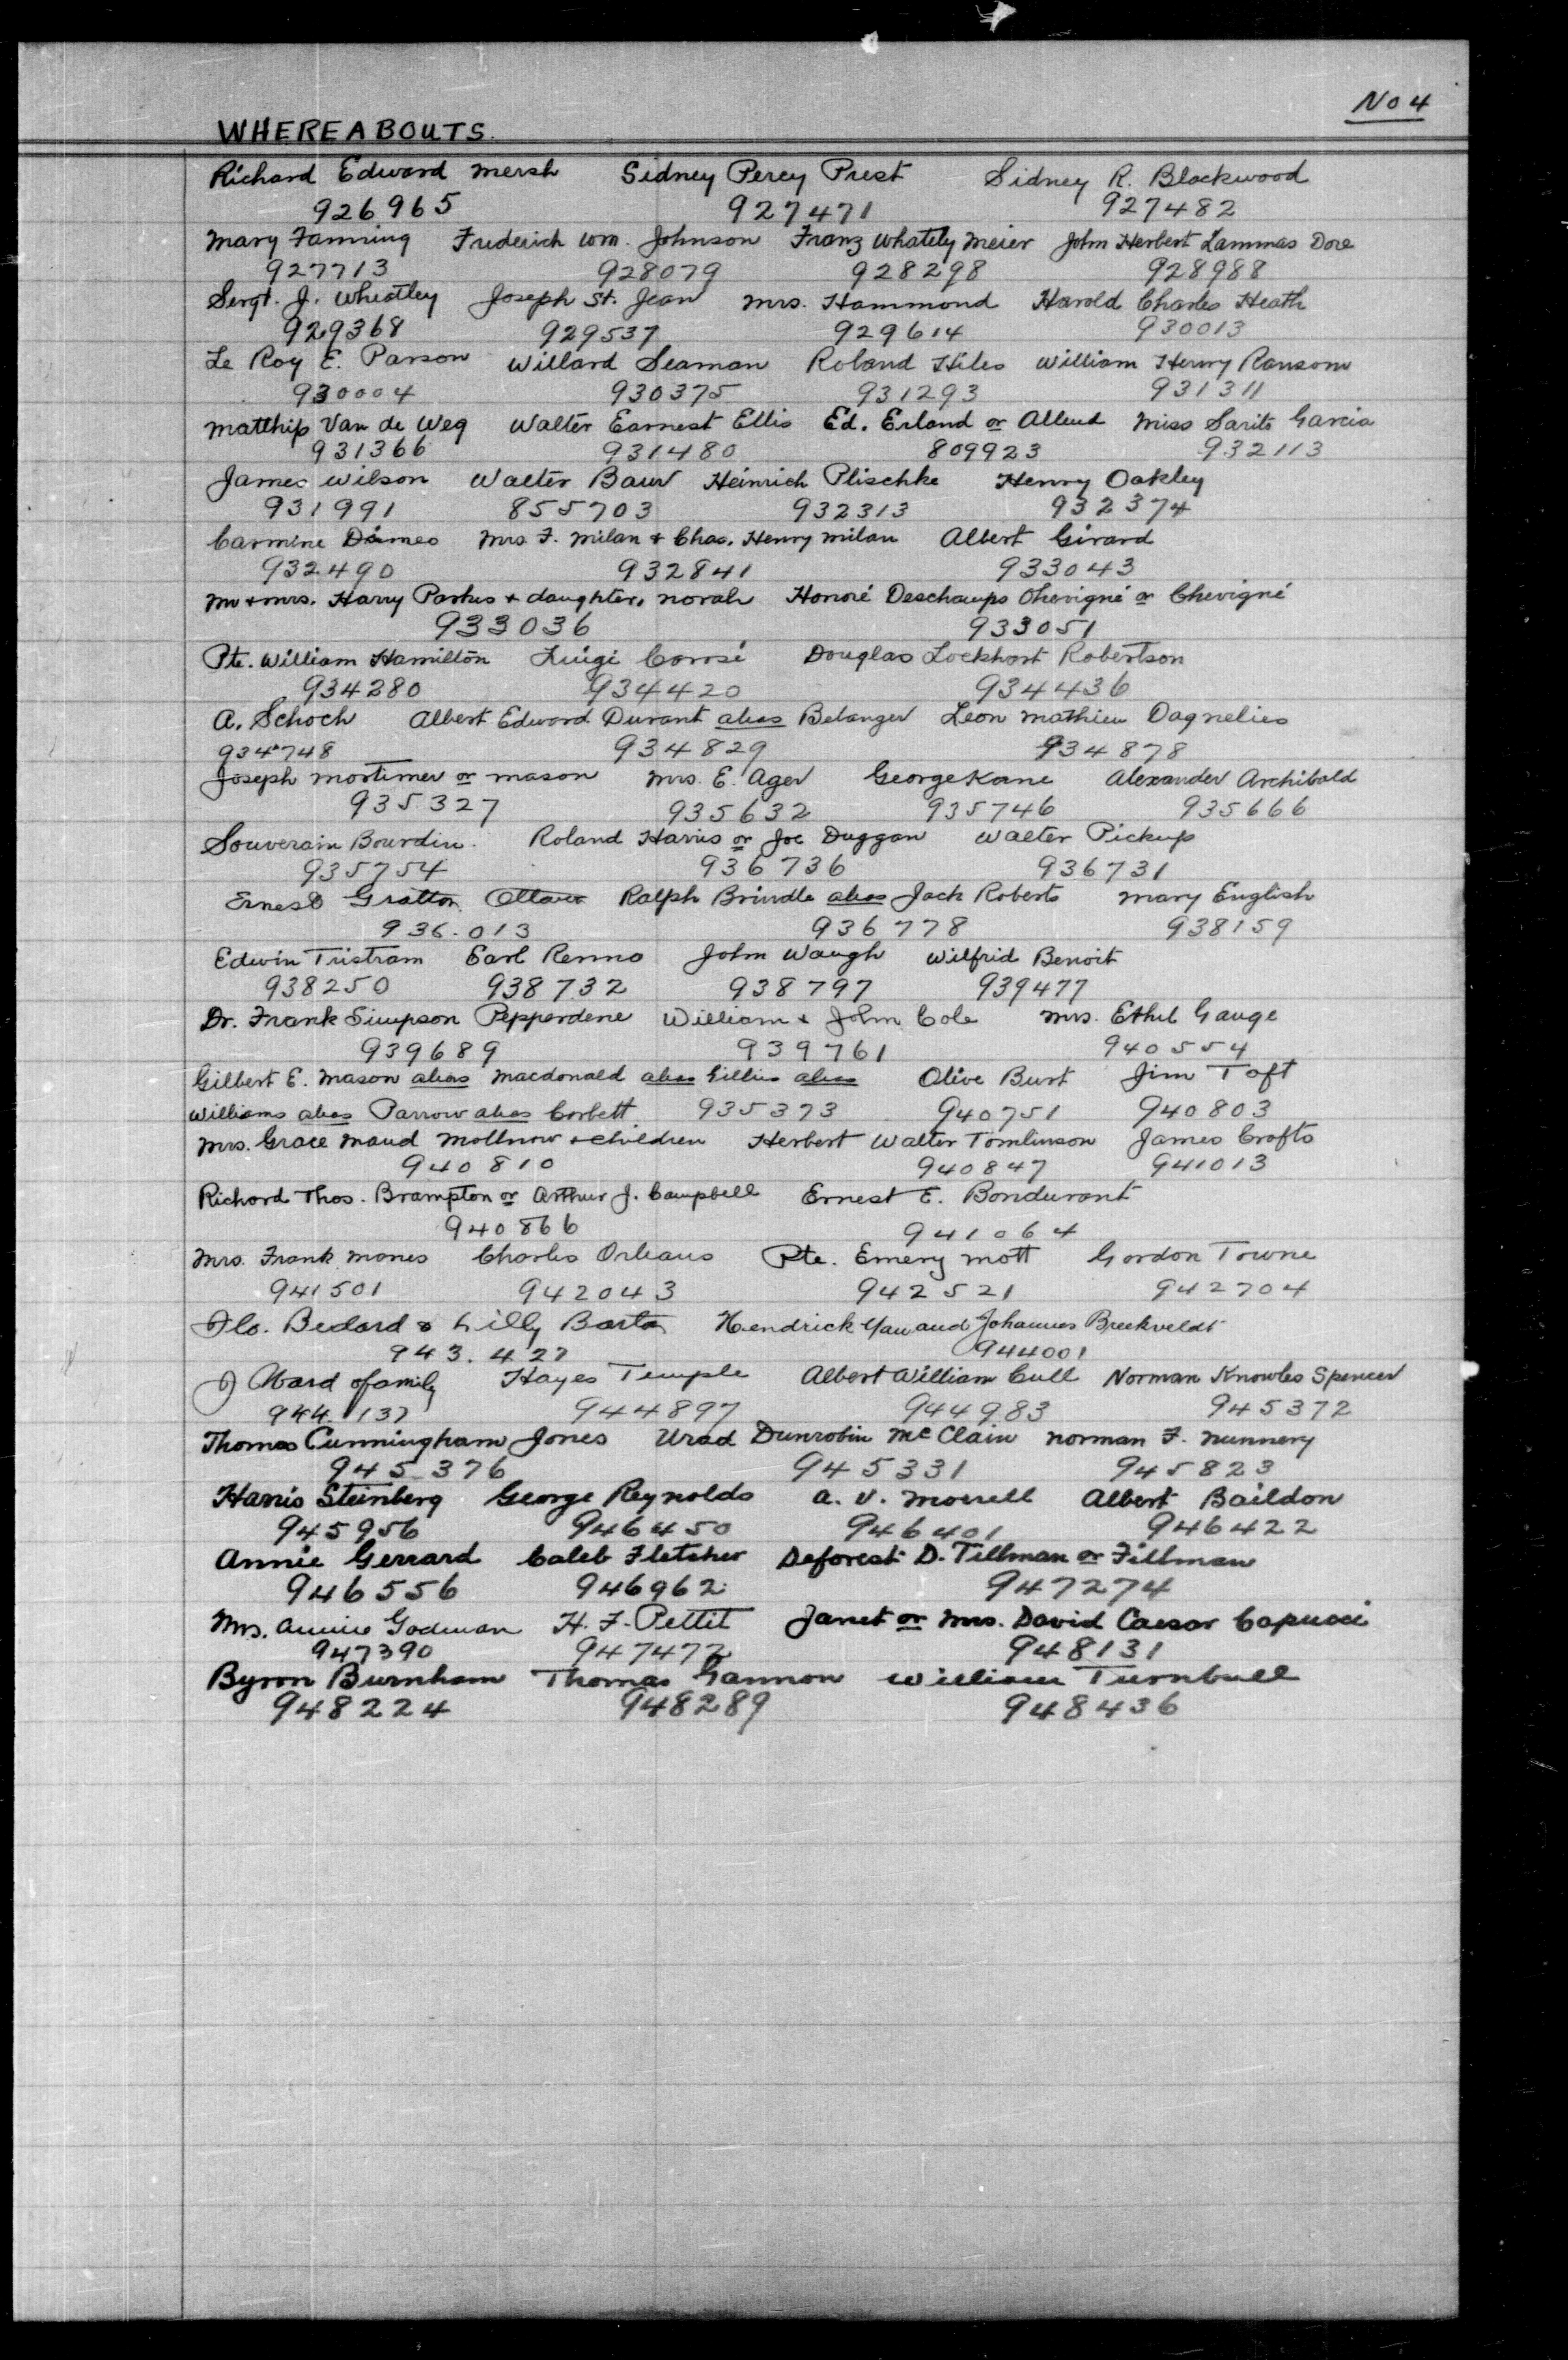 No 4
WHEREABOUTS.
Richard Edward Mersh Sidney Percy Prest Sidney R. Blackwood
926965 927471 927482
Mary Fanning Frederick Wm. Johnson Franz Whately Meier John Herbert Lammas Dore
927713 928079 928298 928988
Sergt. J. Wheatley Joseph St. Jean Mrs. Hammond Harold Charles Heath
929368 929537 929614 930013
Le Roy E. Parson Willard Seaman Roland Hiles William Henry Ransom
930004 930375 931293 931311
Matthip Van de Weg Walter Earnest Ellis Ed. Erland or Allend Miss Sarita Garcia
931366 931480 809923 932113
James Wilson Walter Baur Heinrich Plischke Henry Oakley
931991 855703 932313 932374
Carmine Dimeo Mrs F. Milan & Chas. Henry Milan Albert Girard
932490 932841 933043
Mr & Mrs. Harry Parkes & daughter, Norah Honoré Deschamps Ohevigné or Chevigné
933036 933051
Pte. William Hamilton Luigi Corosi Douglas Lockhart Robertson
934280 934420 934436
A. Schoch Albert Edward Durant alias Belanger Leon Mathieu Dagnelies
934748 934829 934878
Joseph Mortimer or Mason Mrs. E. Ager George Kane Alexander Archibald
935327 935632 935746 935666
Souverain Bourdin. Roland Harris or Joe Duggan Walter Pickup
935754 936736 936731
Ernest Gratton Ottawa Ralph Brindle alias Jack Roberts Mary English
936.013 936778 938159
Edwin Tristram Earl Renno John Waugh Wilfrid Benoit
938250 938732 938797 939477
Dr. Frank Simpson Pepperdene William & John Cole Mrs. Ethel Gauge
939689 939761 940554
Gilbert E. Mason alias Macdonald alias Gillies alias Olive Burt Jim Toft
Williams alias Parrow alias Corbett 935373 940751 940803
Mrs. Grace Maud Mollnow & children Herbert Walter Tomlinson James Crofts
940810 940847 941013
Richard Thos. Brampton or Arthur J. Campbell Ernest E. Bondurant
940866 941064
Mrs. Frank Mones Charles Orleans Pte. Emery Mott Gordon Towne
941501 942043 942521 942704
Flo. Bedard & Lilly Barton Hendrick Yau and Johannes Breekveldt
943.427 944001
J Ward & family Hayes Temple Albert William Cull Norman Knowles Spencer
944.137 944897 944983 945372
Thomas Cunningham Jones Urad Dunrobin McClain Norman F. Nunnery
945376 945331 945823
Harris Steinberg George Reynolds A. V. Morrell Albert Baildon
945956 946450 946401 946422
Annie Gerrard Caleb Fletcher Deforest D. Tillman or Fillman
946556 946962 947274
Mrs. Annie Godman H. F. Pettit Janet or Mrs. David Caesar Capucci
947390 947472 948131
Byron Burnham Thomas Gannon William Turnbull
948224 948289 948436